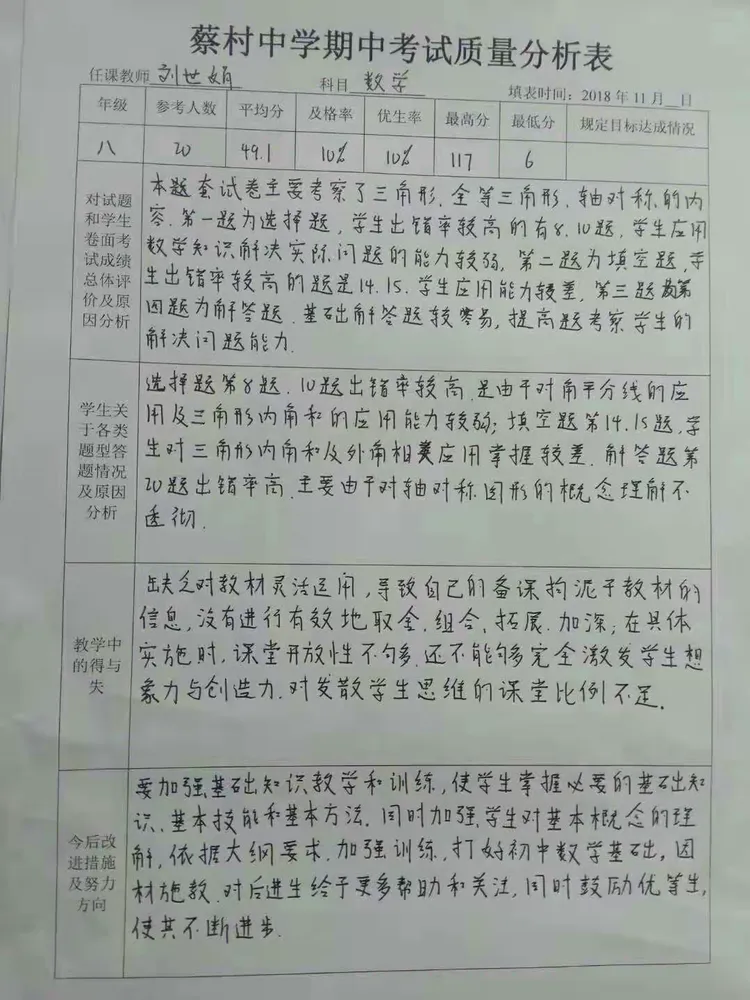 蔡村中学期中考试质量分析表
任课教师 刘世娟 科目 数学 填表时间：2018 年 11 月 日
年级 参考人数 平均分 及格率 优生率 最高分 最低分 规定目标达成情况
八 20 49.1 10% 10% 117 6
对试题
和学生
卷面考
试成绩
总体评
价及原
因分析
本题套试卷主要考察了三角形、全等三角形、轴对称的内
容.第一题为选择题，学生出错率较高的有8.10题，学生应用
数学知识解决实际问题的能力较弱，第二题为填空题，学
生出错率较高的题是14.15.学生应用能力较差，第三题 第
四题为解答题.基础解答题较容易，提高题考察学生的
解决问题能力.
学生关
于各类
题型答
题情况
及原因
分析
选择题第8题.10题出错率较高.是由于对角平分线的应
用及三角形内角和的应用能力较弱；填空题第14.15题，学
生对三角形内角和及外角相关应用掌握较差.解答题第
20题出错率高.主要由于对轴对称图形的概念理解不
透彻.
教学中
的得与
失
缺乏对教材灵活运用，导致自己的备课拘泥于教材的
信息，没有进行有效地取舍.组合、拓展.加深；在具体
实施时，课堂开放性不够多.还不能够多完全激发学生想
象力与创造力.对发散学生思维的课堂比例不足.
今后改
进措施
及努力
方向
要加强基础知识教学和训练，使学生掌握必要的基础知
识.基本技能和基本方法.同时加强学生对基本概念的理
解，依据大纲要求.加强训练，打好初中数学基础，因
材施教.对后进生给于更多帮助和关注，同时鼓励优等生，
使其不断进步.